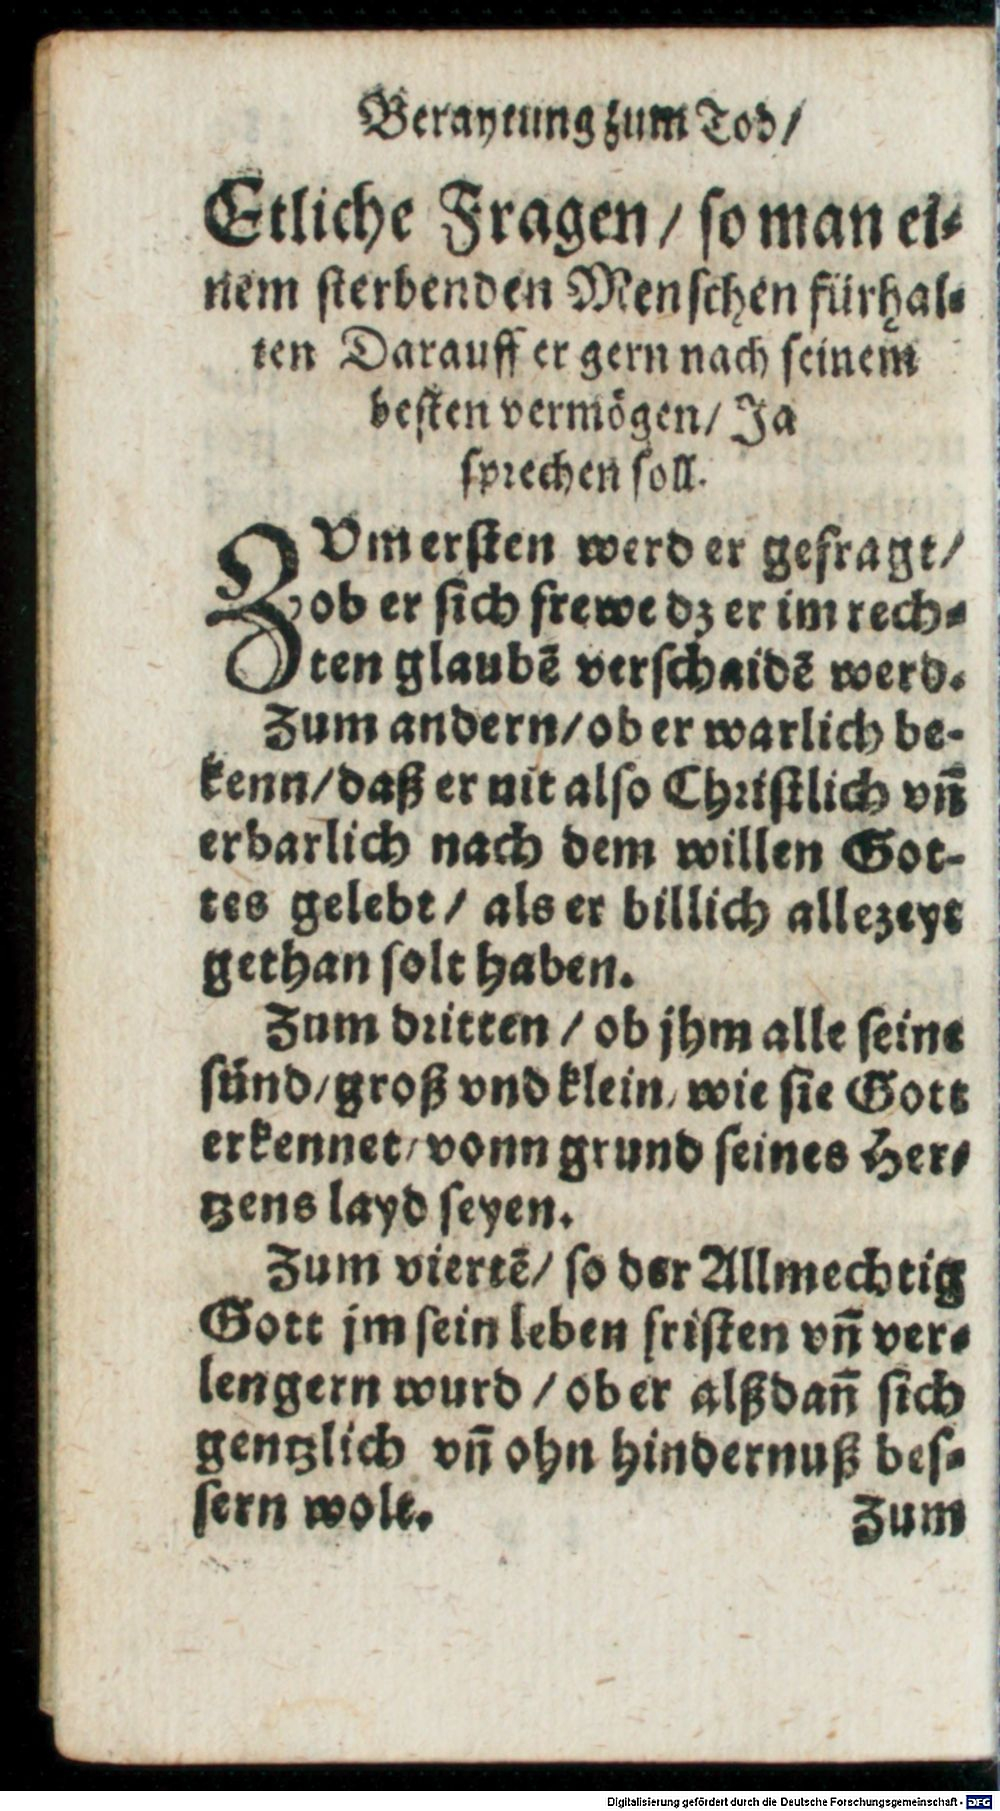 Beraytung zum Tod/
Etliche Fragen/ so man ei-
nem sterbenden Menschen fürhal-
ten Darauff er gern nach seinem
besten vermögen/ Ja
sprechen soll.
ZVm ersten werd er gefragt/
ob er sich frewe dz er im rech-
ten glaubē verschaidē werd.
Zum andern/ob er warlich be-
kenn/daß er nit also Christlich vñ
erbarlich nach dem willen Got-
tes gelebt/ als er billich allezeyt
gethan solt haben.
Zum dritten/ ob jhm alle seine
sünd/groß vnd klein, wie sie Gott
erkennet/vonn grund seines Her/
tzens layd seyen.
Zum viertē/ so der Allmechtig
Gott jm sein leben fristen vñ ver-
lengern wurd/ ob er alßdañ sich
gentzlich vñ ohn hindernuß bes-
sern wolt.
Zum
Digitalisierung gefördert durch die Deutsche Forschungsgemeinschaft - DFG